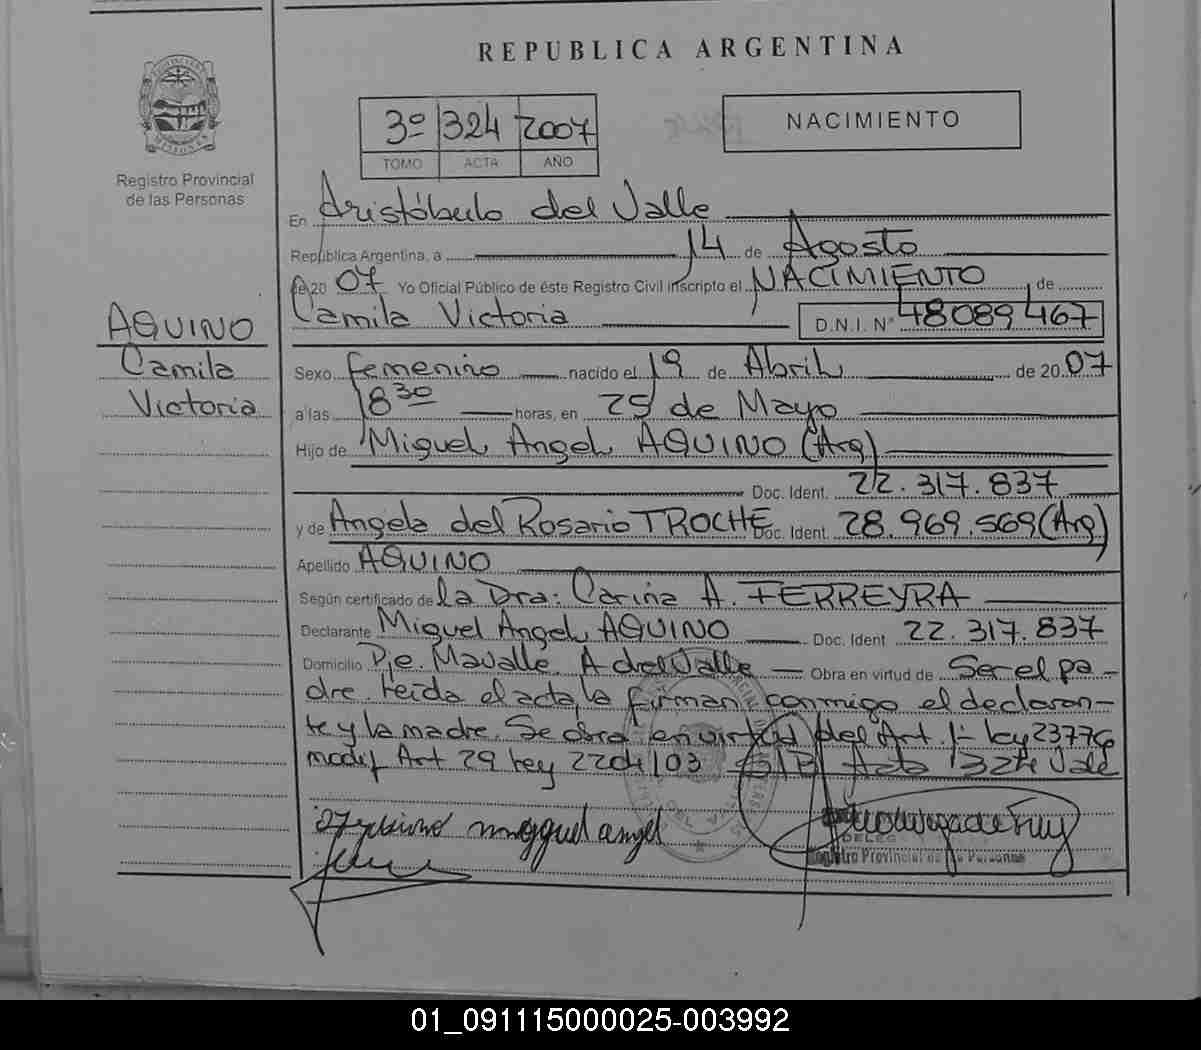 REPUBLICA ARGENTINA
3º 324 2007
TOMO ACTA AÑO
NACIMIENTO
Registro Provincial
de las Personas
AQUINO
Camila
Victoria
En Aristóbulo del Valle
República Argentina, a 14 de Agosto
de 20 07 Yo Oficial Público de éste Registro Civil inscripto el NACIMIENTO de
Camila Victoria D.N.I. Nº 48089467
Sexo femenino nacido el 19 de Abril de 20 07
a las 18 30 horas, en 25 de Mayo
Hijo de Miguel Angel AQUINO (Arg)
Doc. Ident. 22.317.837
y de Angela del Rosario TROCHE Doc. Ident. 28.969.569 (Arg)
Apellido AQUINO
Según certificado de la Dra: Carina A. FERREYRA
Declarante Miguel Angel AQUINO Doc. Ident 22.317.837
Domicilio Pje. Mavalle A del Valle Obra en virtud de Ser el pa-
dre. Leida el acta, la firman conmigo el declaran-
te y la madre. Se obra en virtud del Art. 1- Ley 23776
modif Art 29 Ley 22 de/03 Acta Vale
migguel angel
Registro Provincial de las Personas
01_091115000025-003992